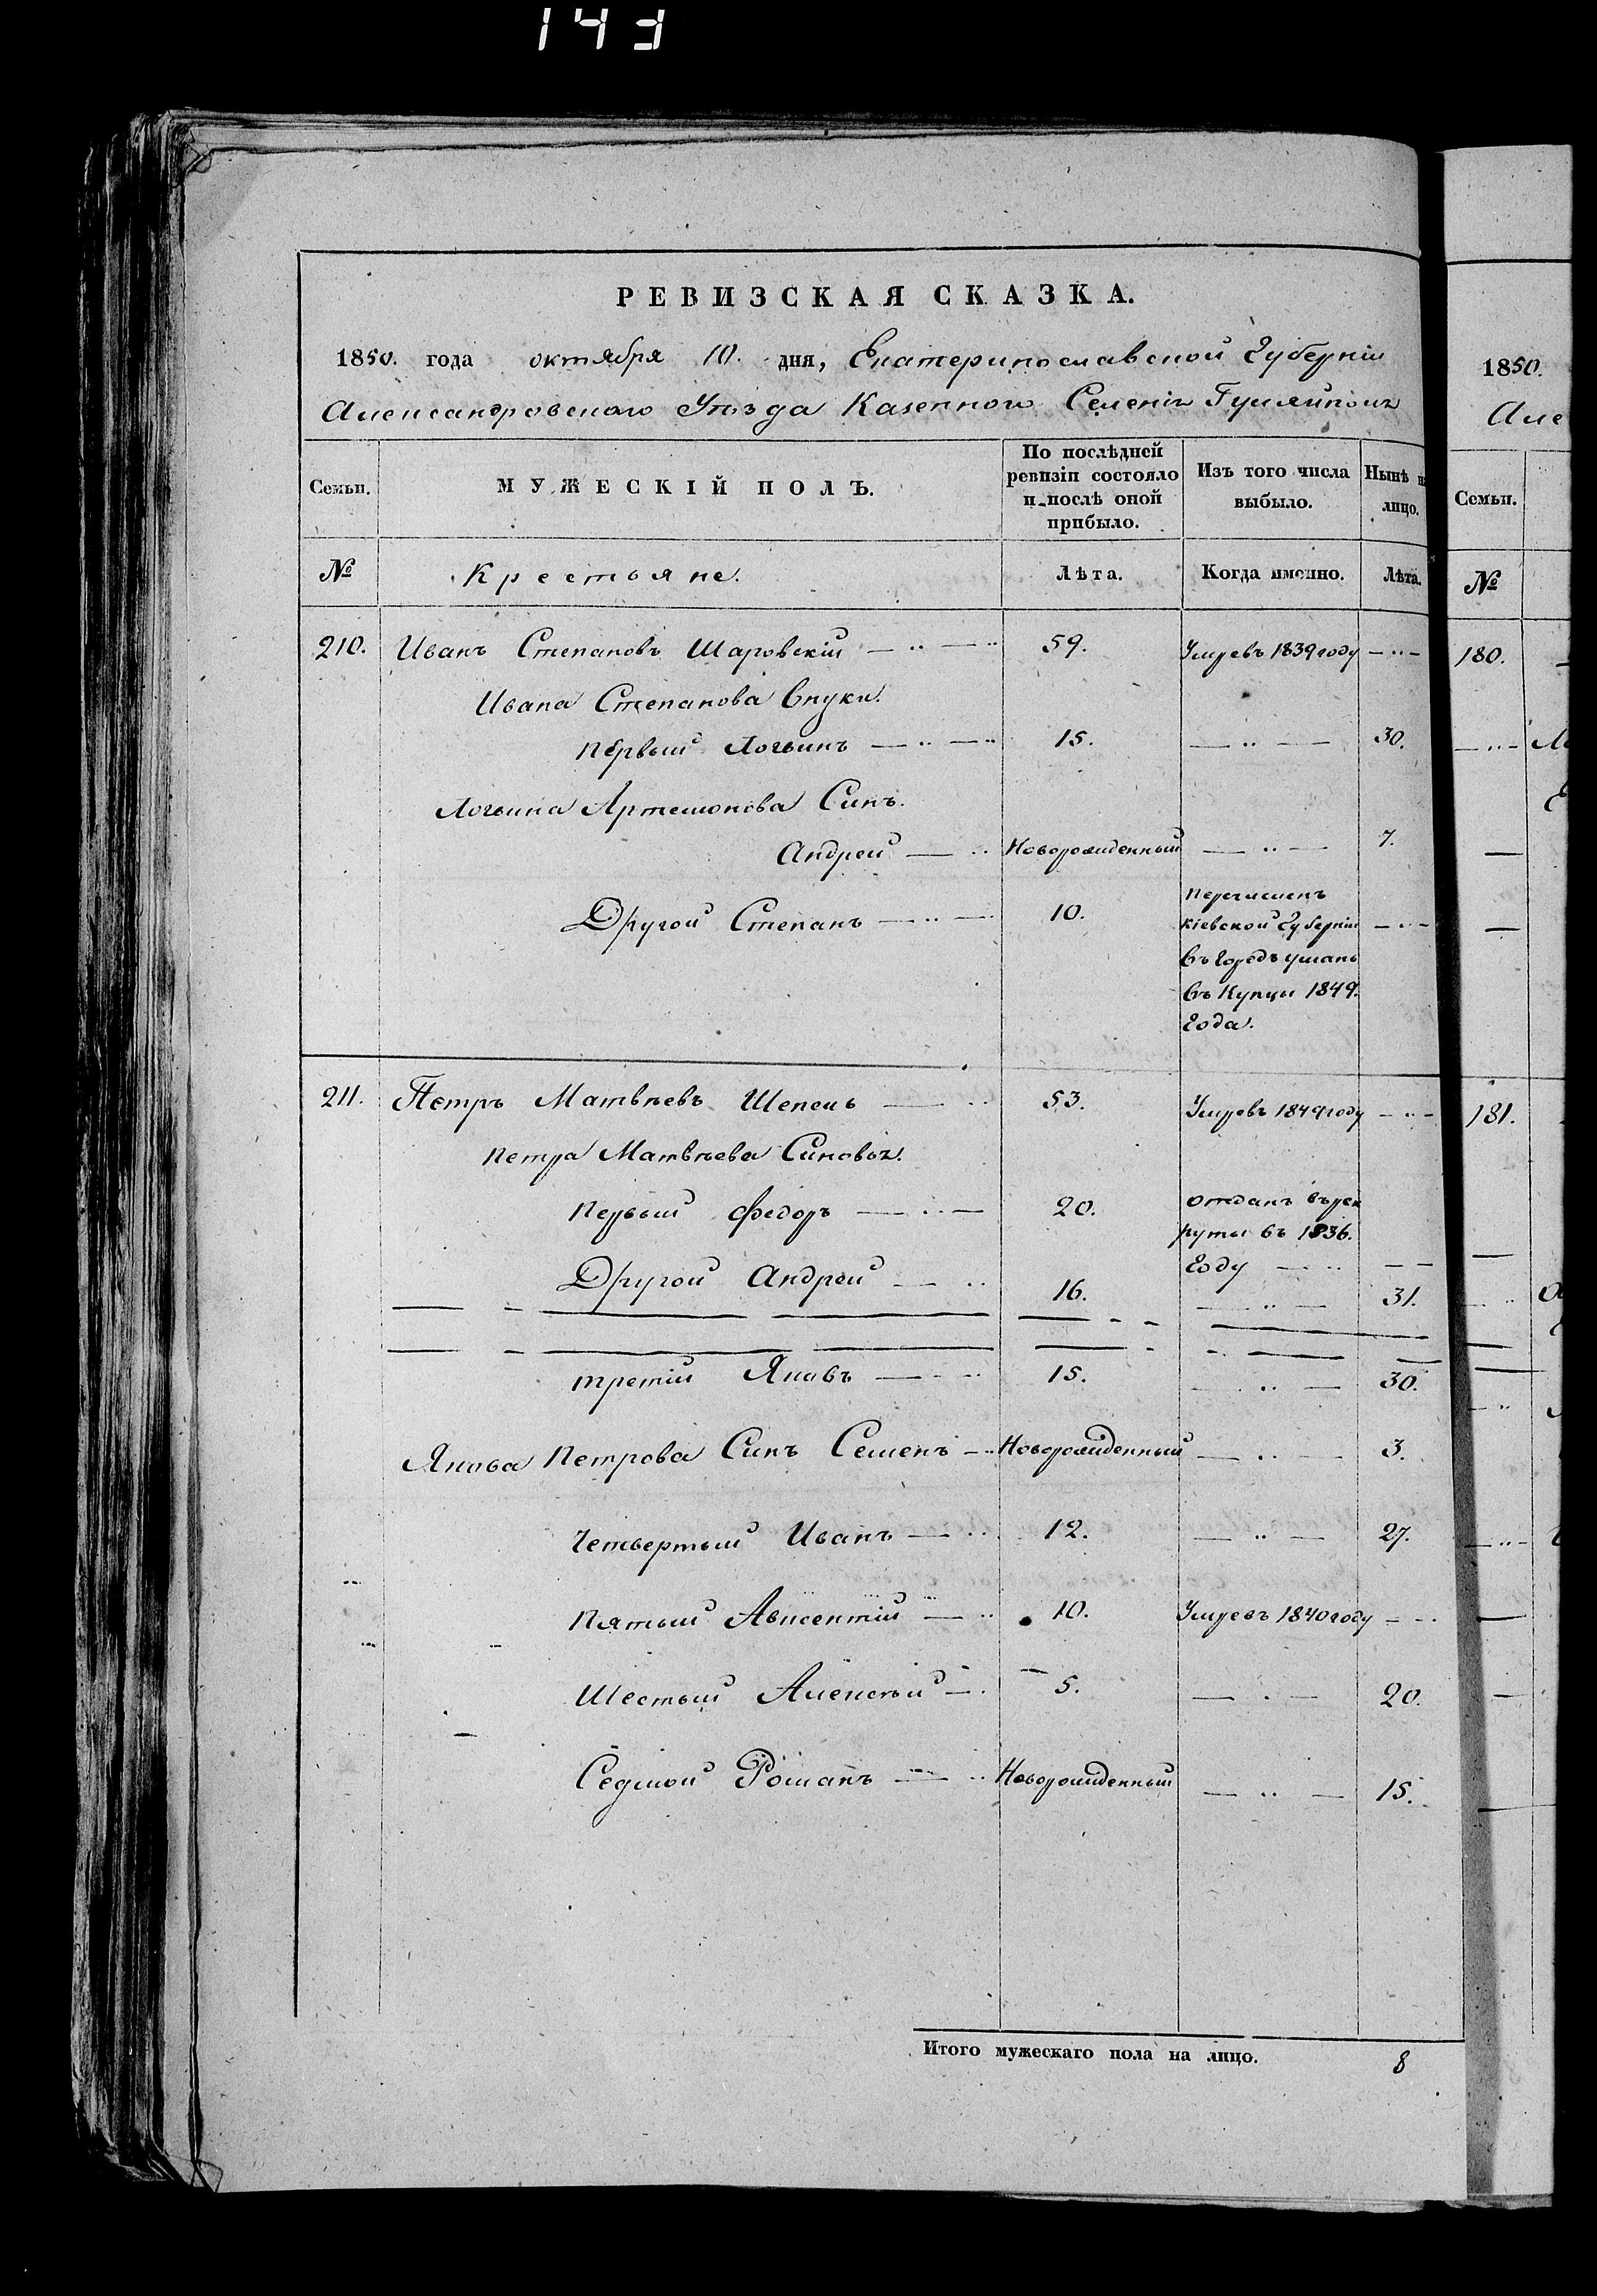 143
РЕВИЗСКАЯ СКАЗКА.
1850. года октября 10. дня, Екатеринославской Губерніи
Александровскаго Уѣзда Казеннаго Селенія Гуляйполя
Семьи. МУЖЕСКІЙ ПОЛЪ. По послѣдней ревизіи состояло и послѣ оной прибыло. Изъ того числа выбыло. Нынѣ на лицо.
№ Крестьяне. Лѣта. Когда именно. Лѣта.
210. Иванъ Степановъ Шаровскій 59. Умревъ 1839 году
Ивана Степанова Внуки.
Первый Логвинъ 15. 30.
Логвина Артемонова Синъ.
Андрей Новорожденный 7.
Другой Степанъ 10. Перечисленъ
Кіевской Губерніи
въ городъ Умань
въ Купцы 1849.
Года.
211. Петръ Матвѣевъ Шепель 53. Умревъ 1849 году
Петра Матвѣева Синовья.
Первый Федоръ 20. отданъ въ рек
руты въ 1836.
Году
Другой Андрей 16. 31.
третій Яковъ 15. 30.
Якова Петрова Синъ Семенъ Новорожденный 3.
Четвертый Иванъ 12. 27.
Пятый Авксентій 10. Умревъ 1840 году
Шестый Алексѣй 5. 20.
Седмой Романъ Новорожденный 15.
Итого мужескаго пола на лицо. 8
1850.
Але
Семьи.
№
180.
181.